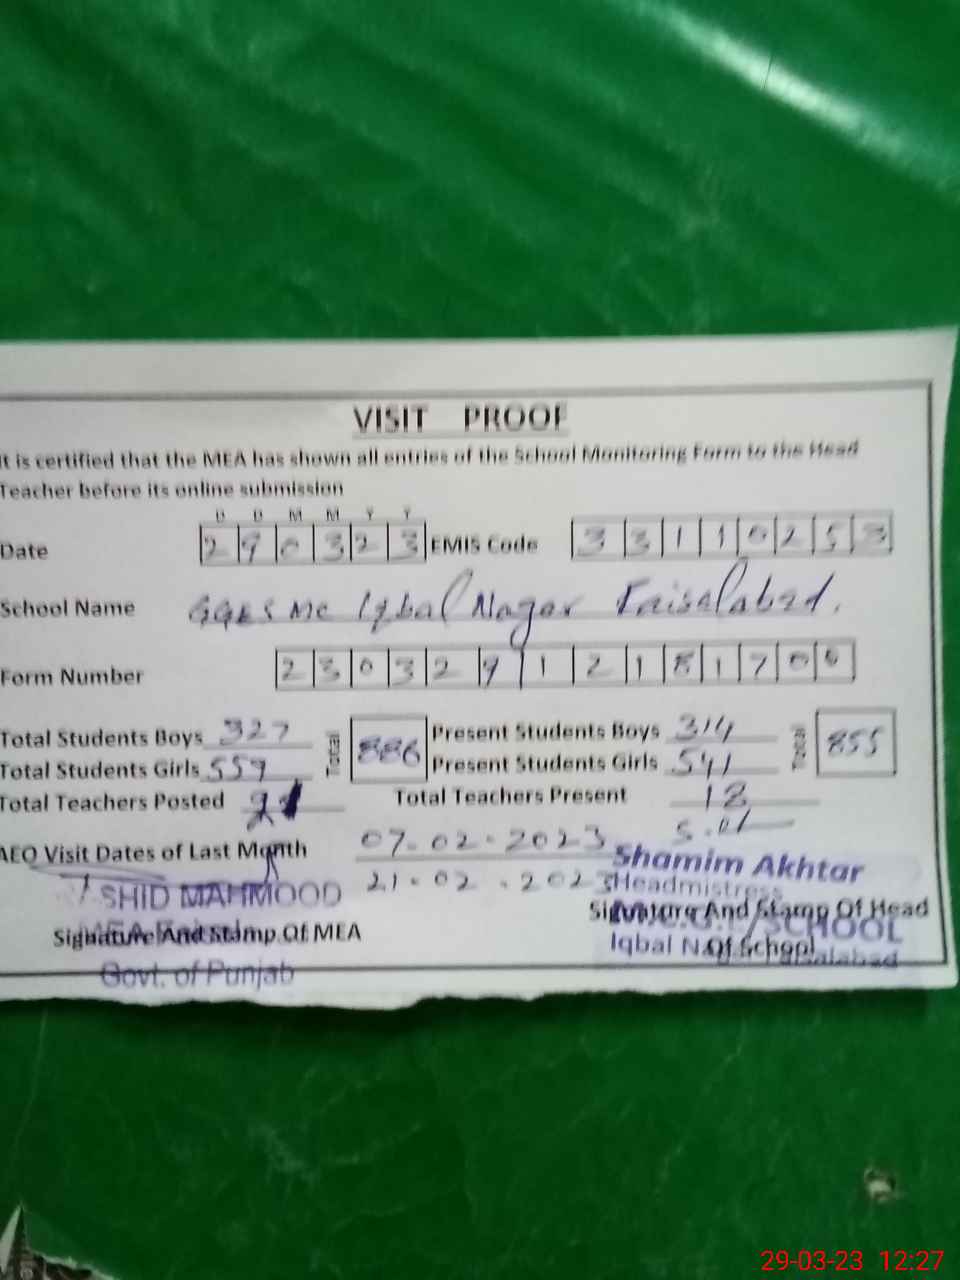 VISIT PROOF
It is certified that the MEA has shown all entries of the School Monitoring Form to the Head
Teacher before its online submission
D D M M Y Y
Date 2 9 0 3 2 3 EMIS Code 3 3 1 1 0 2 5 3
School Name GGES MC Iqbal Nagar Faisalabad.
Form Number 2 3 0 3 2 9 1 2 1 8 1 7 0 0
Total Students Boys 327 Total 886 Present Students Boys 314 Total 855
Total Students Girls 559 Present Students Girls 541
Total Teachers Posted Total Teachers Present 18
AEO Visit Dates of Last Month 07-02-2023
21-02-2023
Shamim Akhtar
SHID MAHMOOD Headmistress
Signature And Stamp Of MEA Signature And Stamp Of Head
Of School
SCHOOL
Iqbal Faisalabad
Govt. of Punjab
29-03-23 12:27